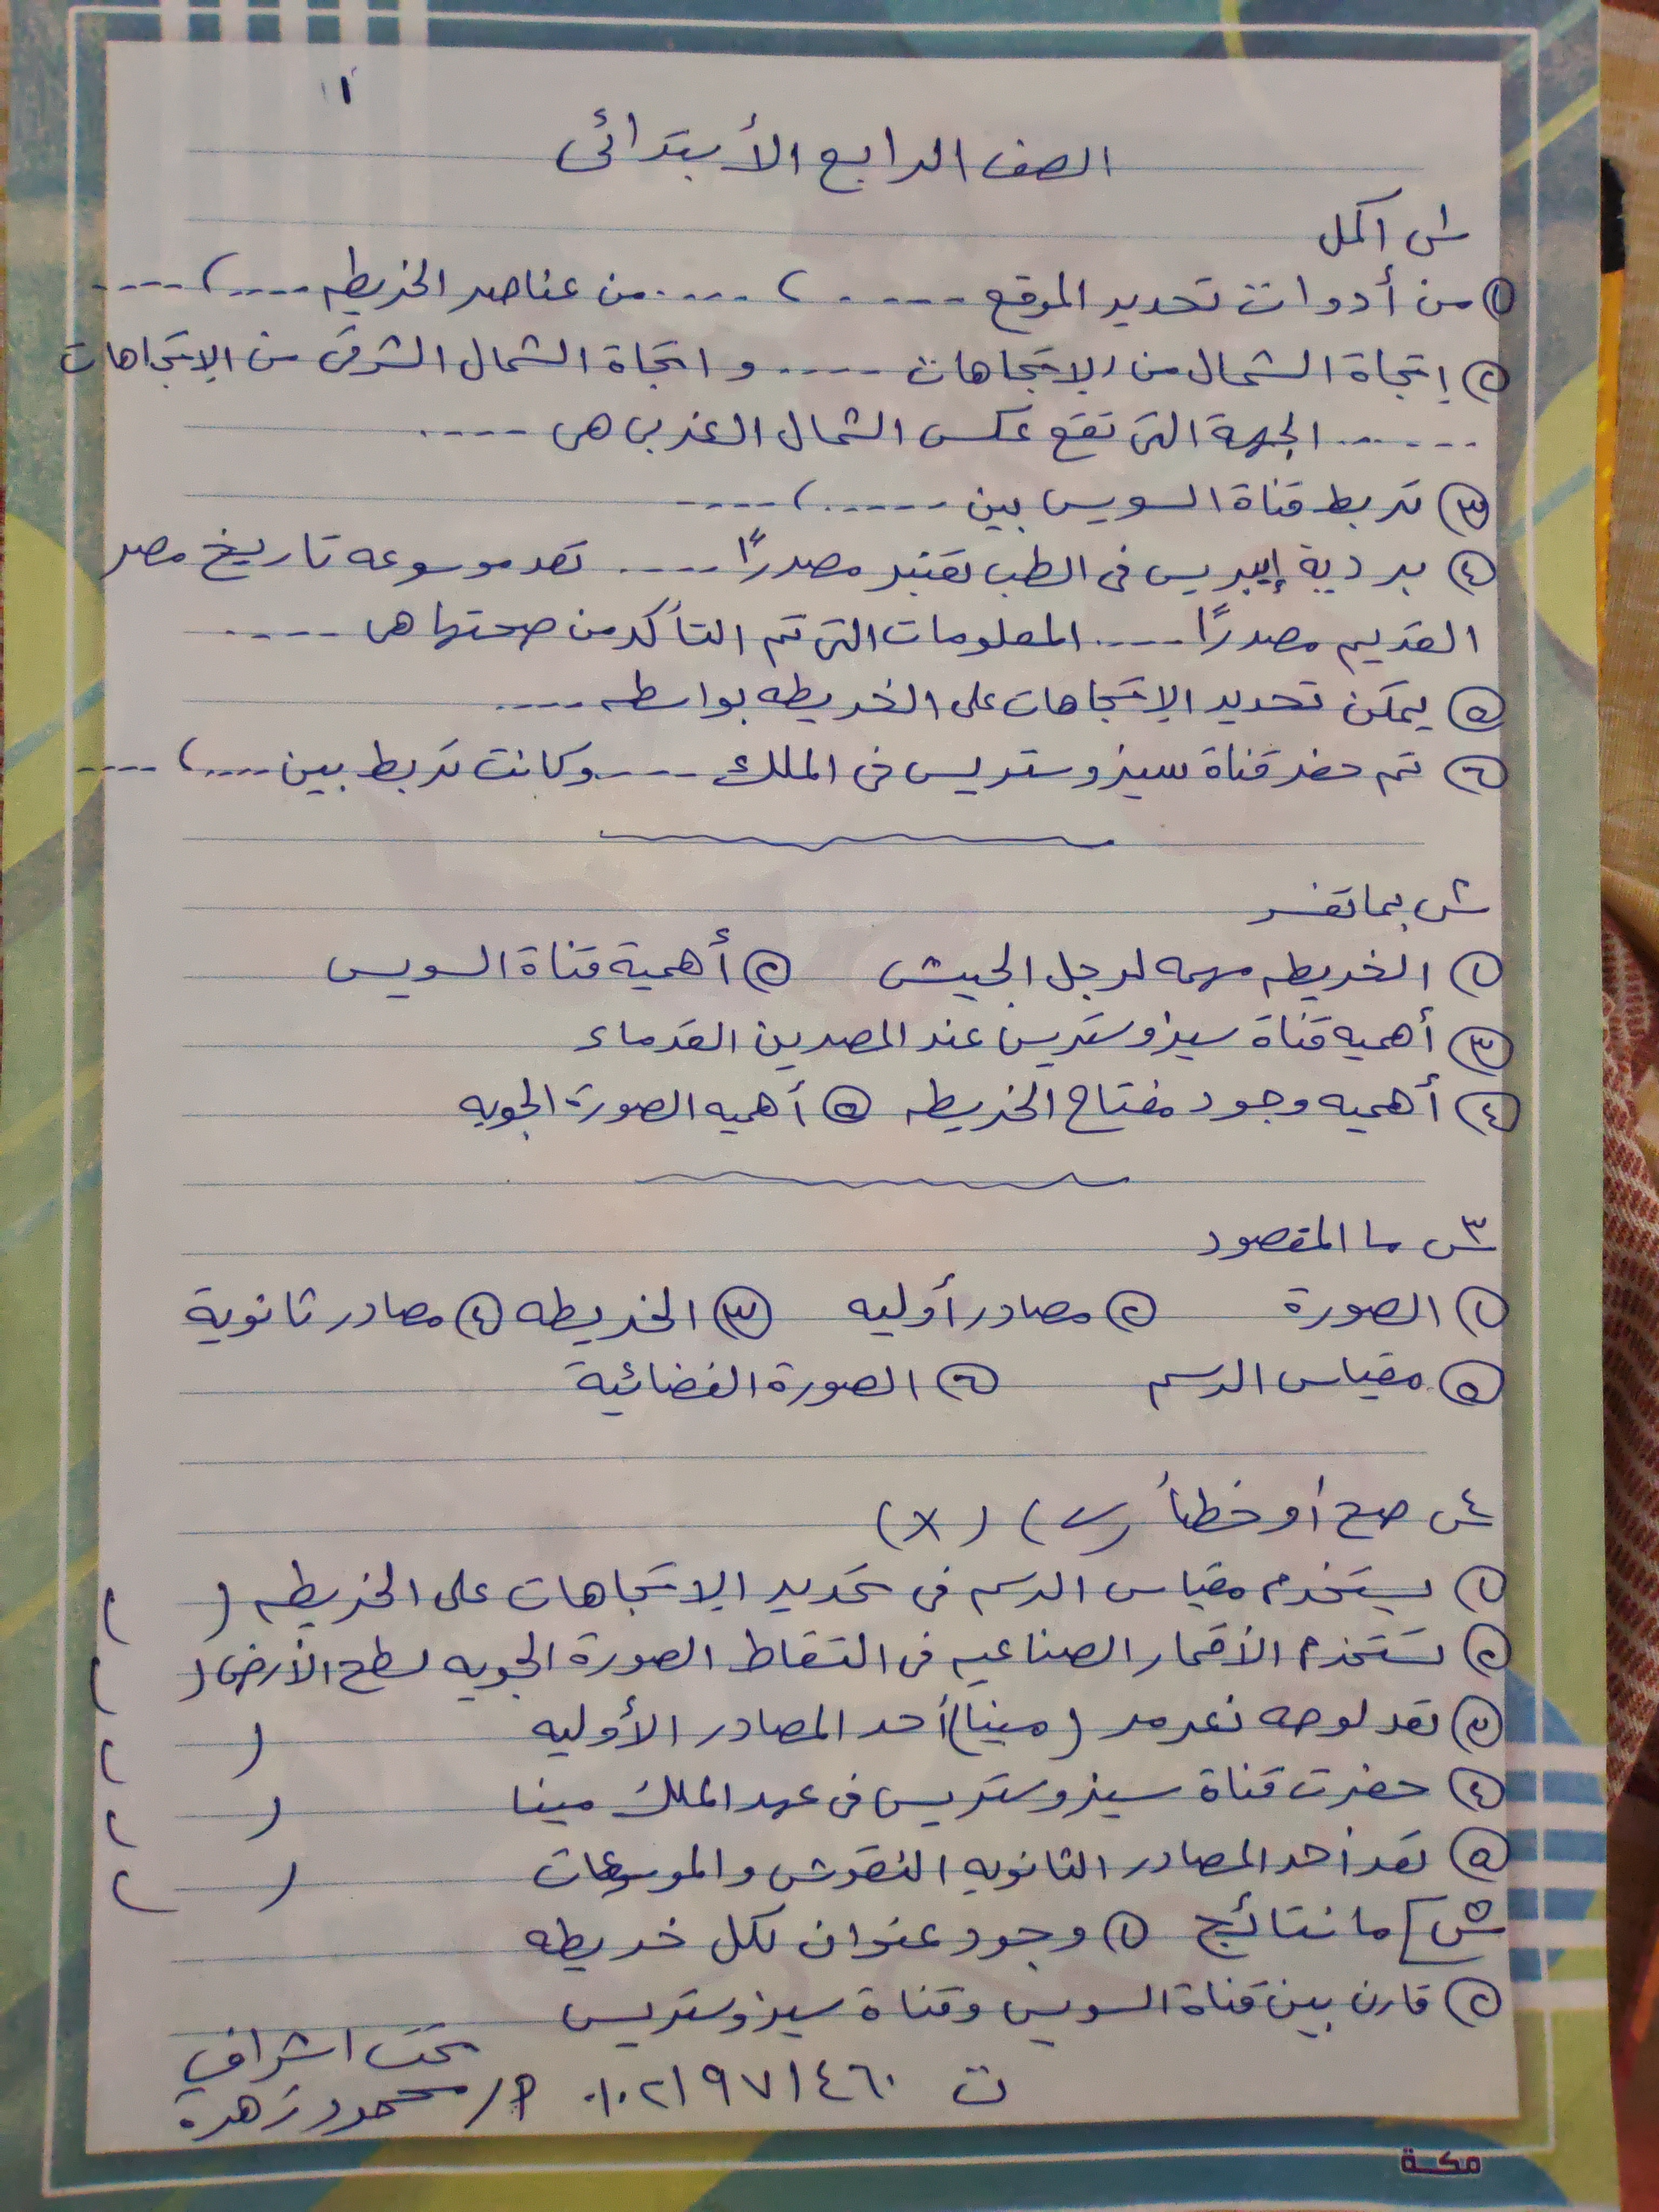 ١
الصف الرابع الأبتدائى
س١ اكمل
① من أدوات تحديد الموقع ----- ، ---- من عناصر الخريطه ---- ، ----
② إتجاة الشمال من الإتجاهات ---- و اتجاة الشمال الشرقى من الإتجاهات
------ الجهة التى تقع عكس الشمال الغربى هى ----
③ تربط قناة السويس بين ----- ، ----
④ بردية إيبريس فى الطب تعتبر مصدرًا ---- تعد موسوعه تاريخ مصر
القديم مصدرًا ---- المعلومات التى تم التأكد من صحتها هى ----
⑤ يمكن تحديد الإتجاهات على الخريطه بواسطه ----
⑥ تم حفر قناة سيزوستريس فى الملك ---- وكانت تربط بين ---- ، ----
س٢ بما تفسر
① الخريطه مهمه لرجل الجيش ② أهمية قناة السويس
③ أهميه قناة سيزوستريس عند المصرين القدماء
④ أهميه وجود مفتاح الخريطه ⑤ أهميه الصورة الجويه
س٣ ما المقصود
① الصورة ② مصادر أوليه ③ الخريطه ④ مصادر ثانوية
⑤ مقياس الرسم ⑥ الصورة الفضائية
س٤ صح أو خطأ (✓) (x)
① يستخدم مقياس الرسم فى تحديد الإتجاهات على الخريطه ( )
② تستخدم الأقمار الصناعيه فى التقاط الصورة الجويه لسطح الأرض ( )
③ تعد لوحه نعرمر (مينا) أحد المصادر الأوليه ( )
④ حفرت قناة سيزوستريس فى عهد الملك مينا ( )
⑤ تعد أحد المصادر الثانويه النقوش والموسوعات ( )
س٥ ما نتائج ① وجود عنوان لكل خريطه
② قارن بين قناة السويس وقناة سيزوستريس
تحت اشراف
ت ٠١٠٢١٩٧١٤٦٠ أ/ محمود زهرة
مكة